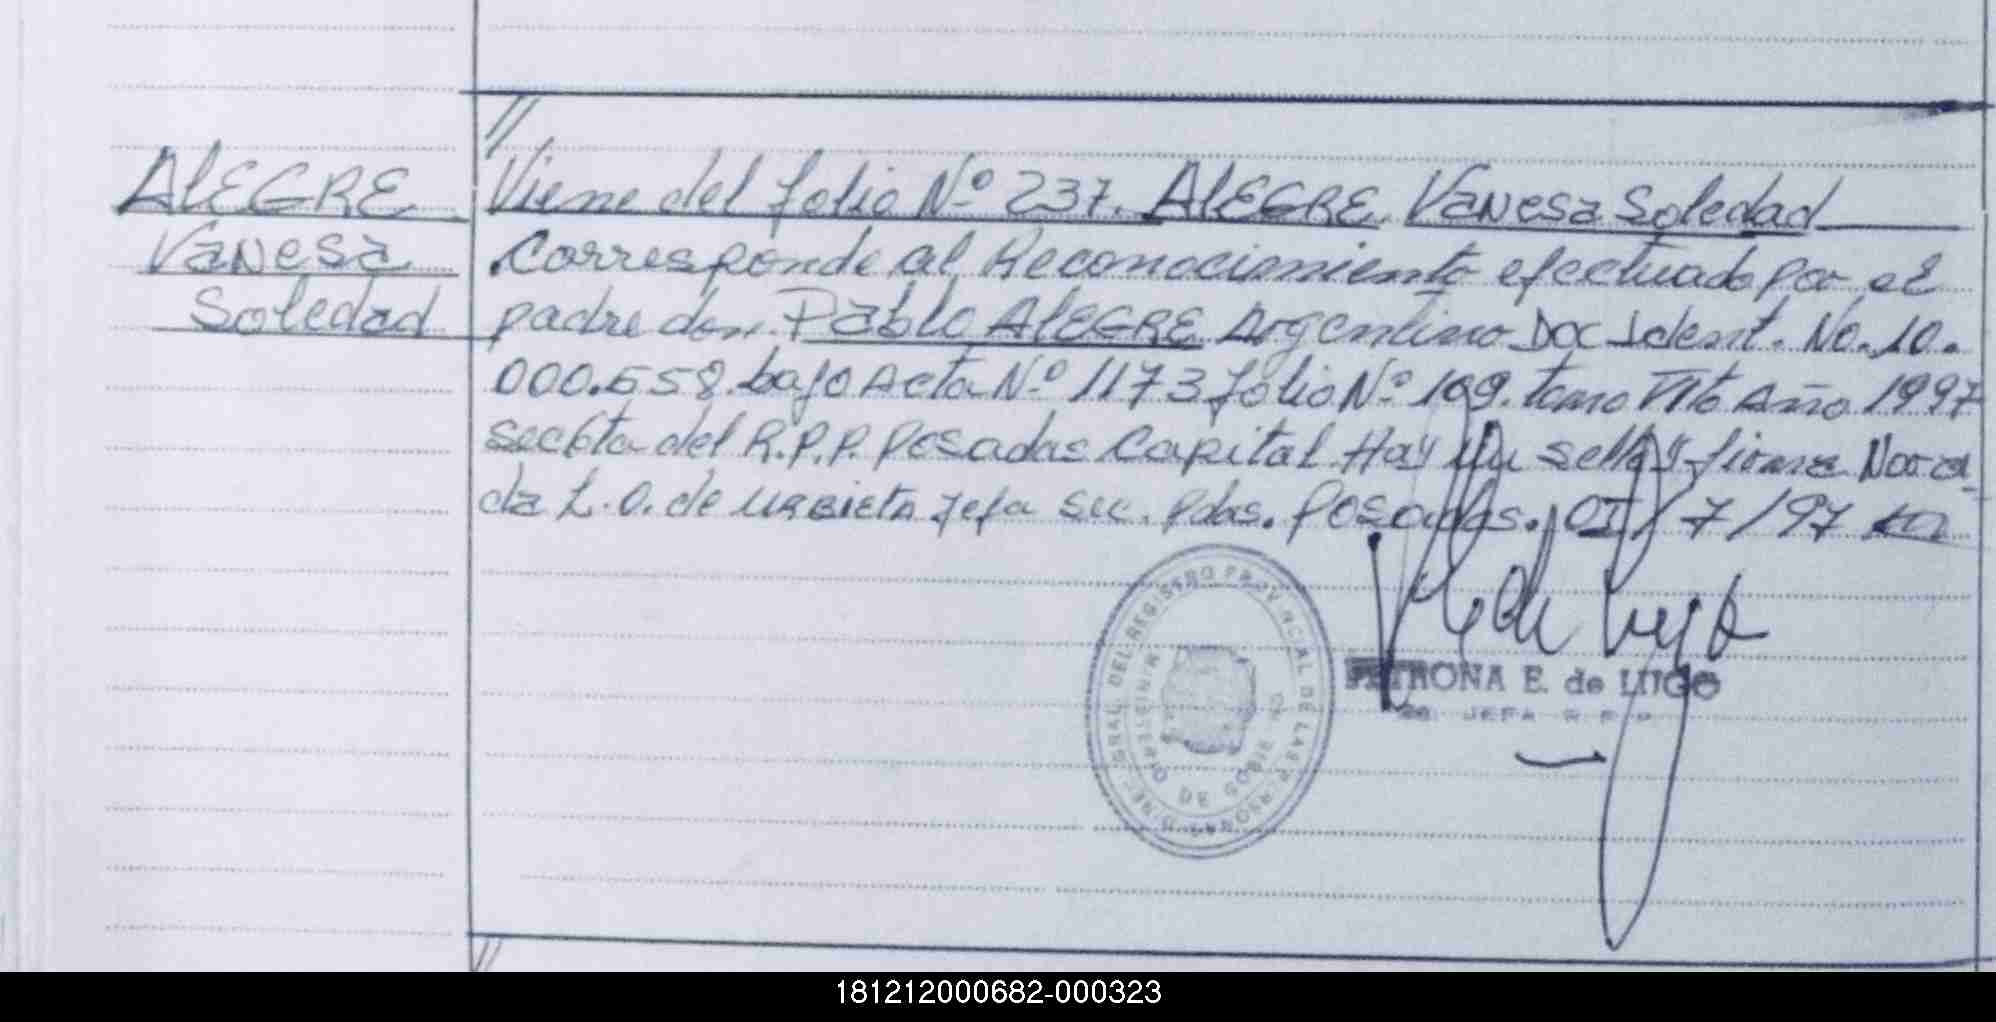 ALEGRE
Vanesa
Soledad
//
Viene del folio Nº 237. ALEGRE Vanesa Soledad
Corresponde al Reconocimiento efectuado por el
padre don Pablo ALEGRE Argentino Doc Ident. No. 10.
000.658. bajo Acta Nº 1173 folio Nº 109. tomo Año 1997
del R.P.P. Posadas Capital Hay Un sello y firma Nora
L. O. de Urbieta Jefa Sec. Pdas. Posadas. 01/7/97
DIREC. GRAL. DEL REGISTRO PROVINCIAL DE LAS PERSONAS
MINISTERIO DE GOBIERNO
PETRONA E. de LUGO
JEFA R P P
//
181212000682-000323